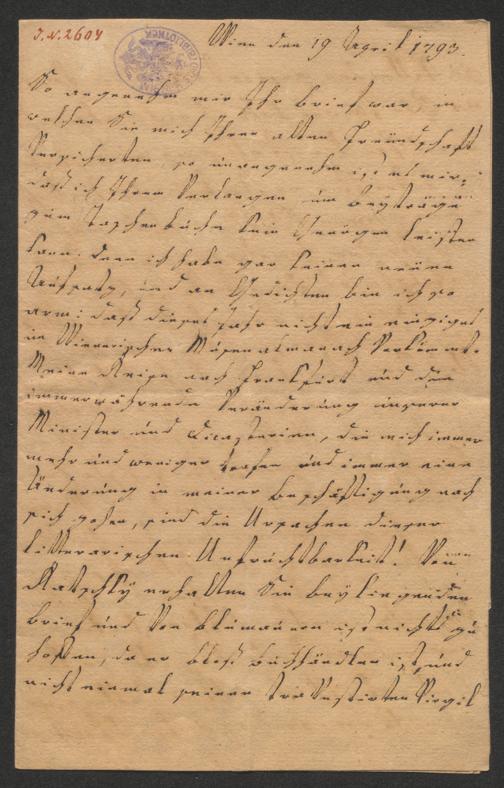 J.N. 2604
Wien den 19 April 1793.
So angenehm mir Ihr brief war, in
welchen Sie mich Ihrer alten Freündschaft
versicherten, so unangenehm ist es mir,
daß ich Ihrem Verlangen um beyträge
zum Taschenbuche kein Genügen leisten
kann. denn ich habe gar keinen neüen
Aufsatz, und an Gedichten bin ich so
arm: daß dieses Jahr nicht ein einziges
im Wienerischen Musenalmanach vorkömmt.
Meine Reise nach Frankfurt und die
immerwährende Veränderung unserer
Minister und Dicasterien, die mich immer
mehr und weniger trafen und immer eine
Änderung in meiner beschäftigung nach
sich zohen, sind die Ursachen dieser
litterarischen Unfruchtbarkeit! Von
Ratschky erhalten Sie beyliegenden
brief und von blumauern ist nichts zu
hoffen, da er bloß buchhändler ist, und
nicht einmal seinen travestirten Virgil